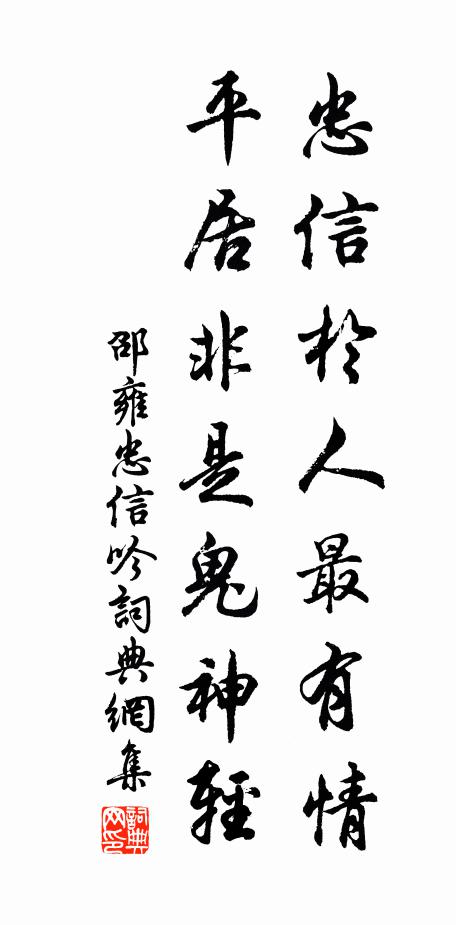 忠信於人最有情
平居非是鬼神輕
邵雍忠信吟詞典網集
詞典網印